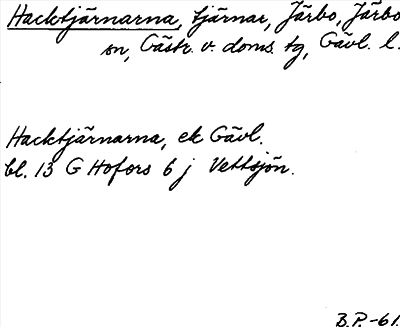 Hacktjärnarna, tjärnar, Järbo, Järbo
sn, Gästr. v. doms. tg, Gävl. l.
Hacktjärnarna, ek Gävl.
bl. 13 G Hofors 6 j Vettsjön.
B.P.-61.